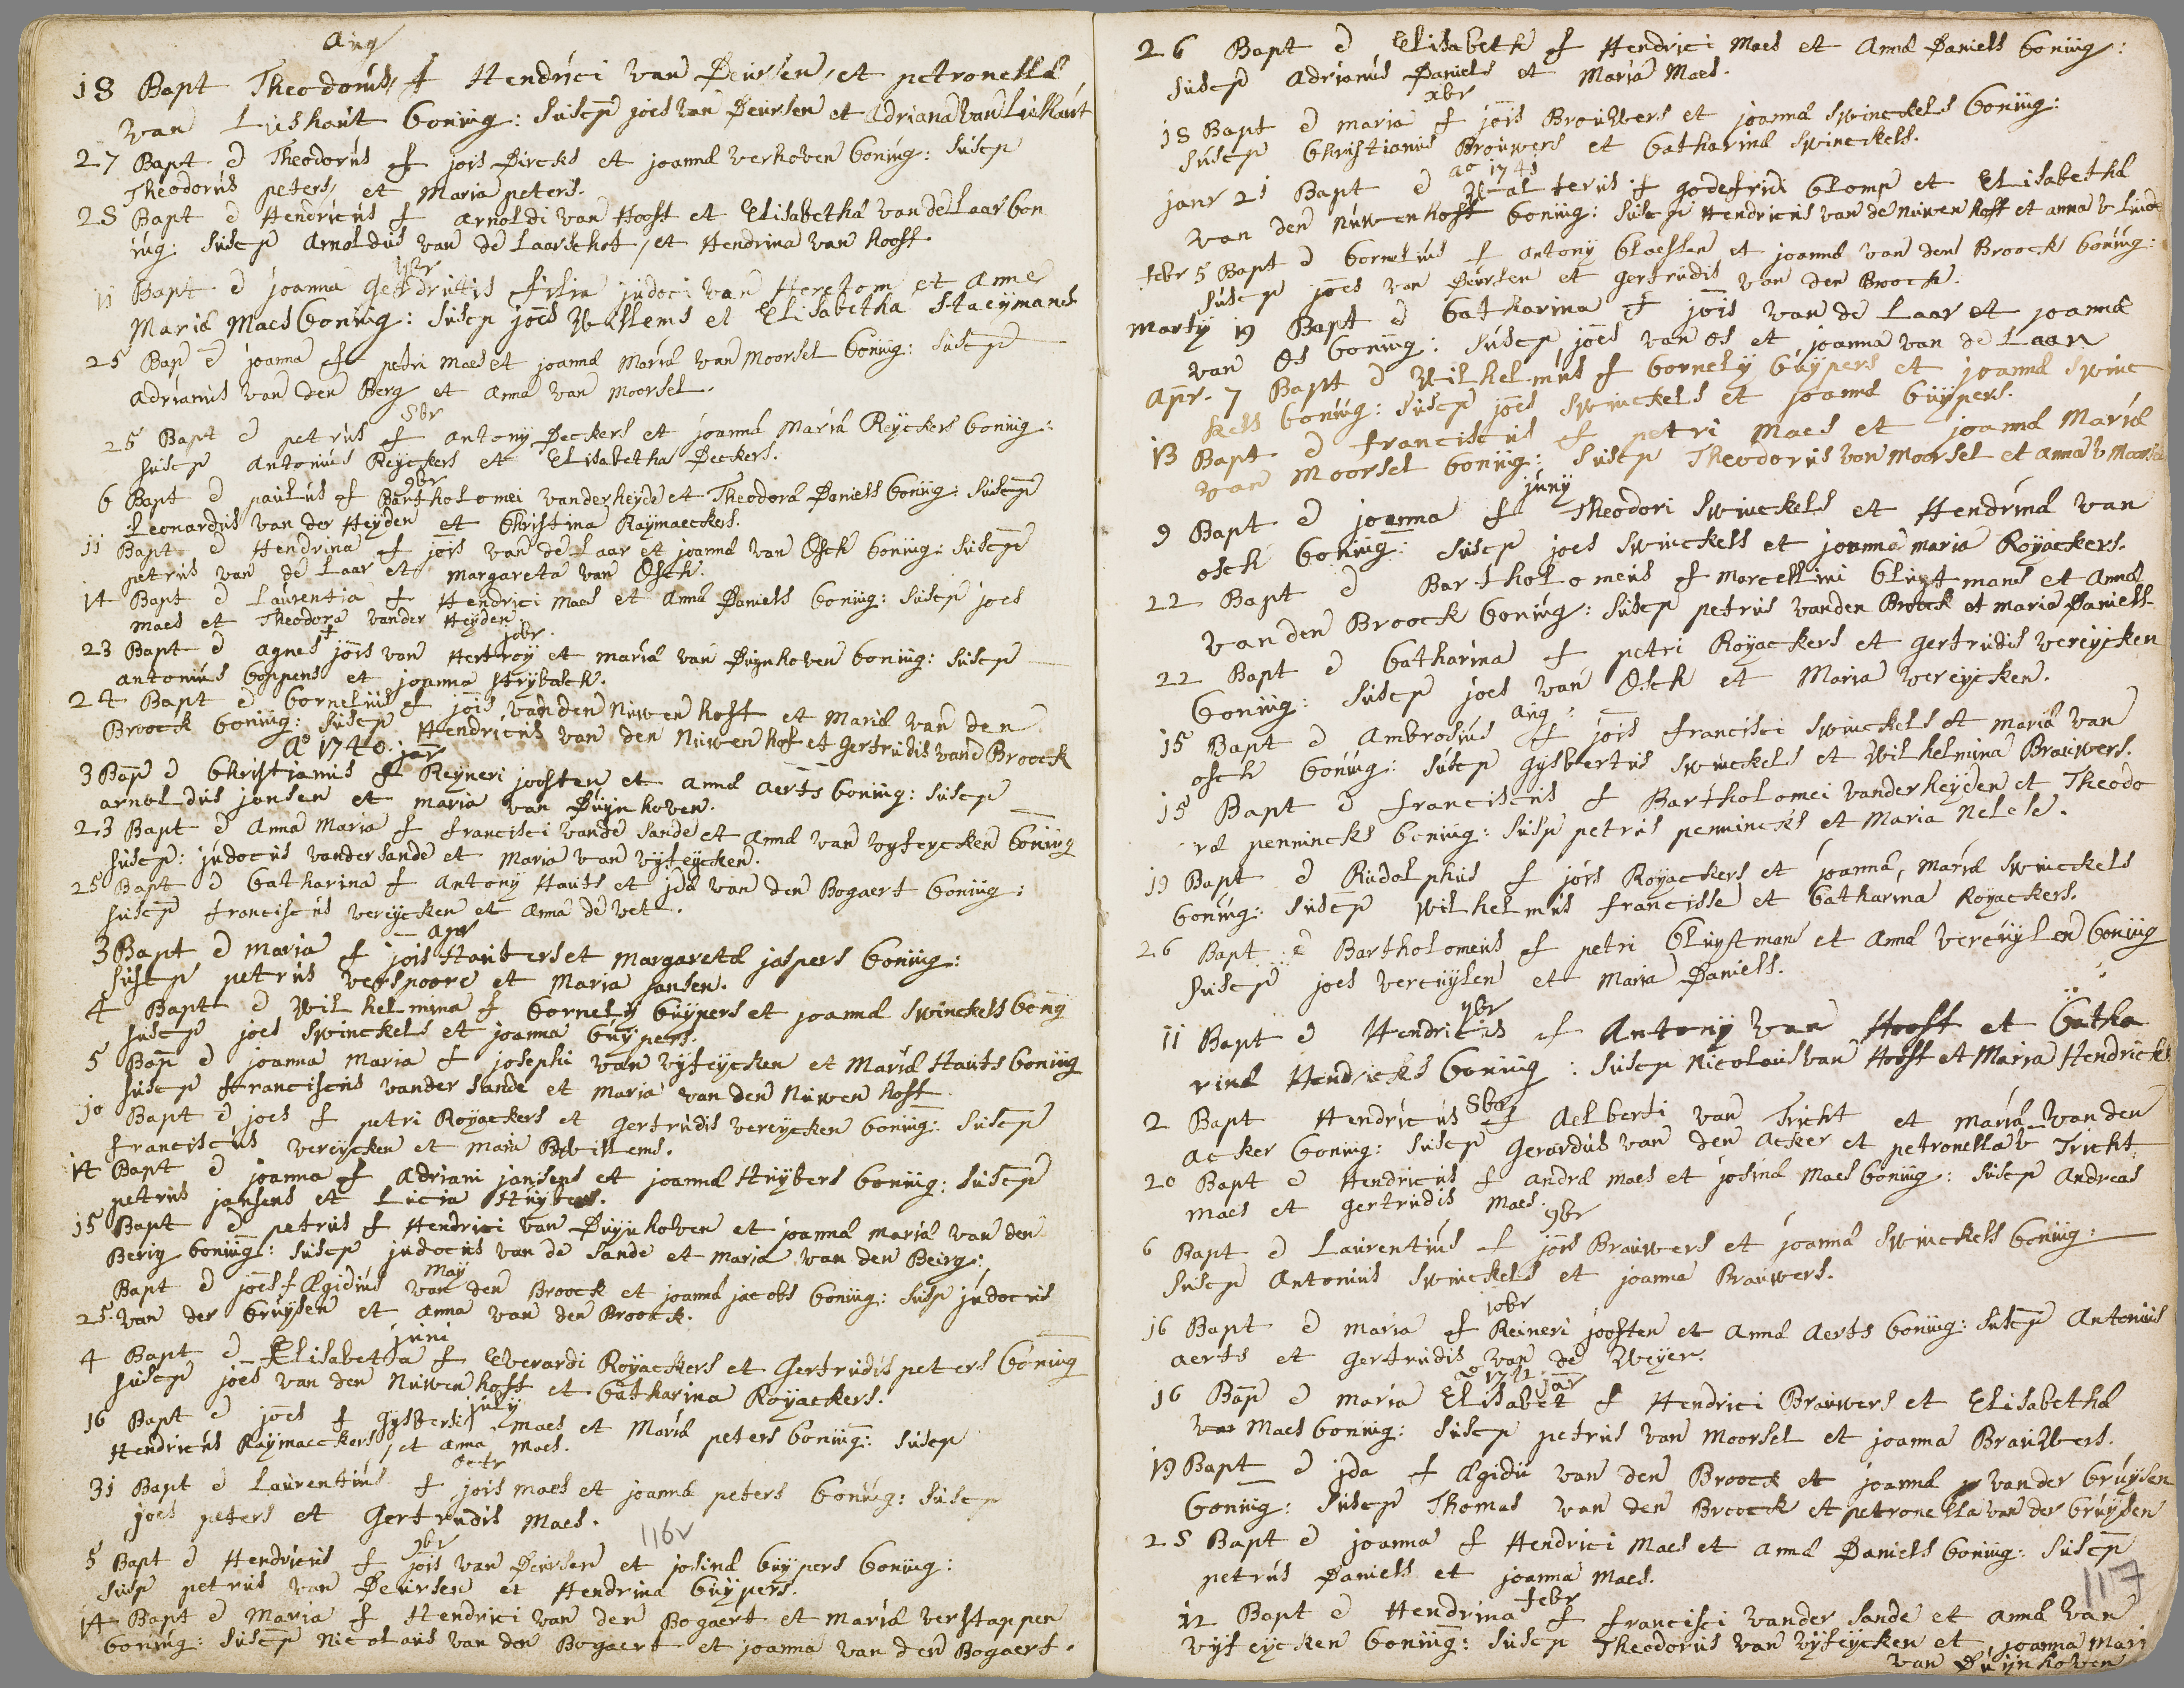 Aug
18 Bapt Theodorus f Hendrici van Deursen, et petronella
van Lieshout Coniug: Suscep joes van Deursen et Adriana van Lieshout
27 Bapt e Theodorus f jois Dircks et joanna verhoven Coniug: Suscep
Theodorus peters, et Maria peters.
28 Bapt e Hendricus f arnoldi van Hooft et Elisabetha van de Laar Con
iug: Suscep Arnoldus van de Laarschot, et Hendrina van hooff.
7br
11 Bapt e joanna gerdrutis filia judoci van Heretom et Anne
Maria Maes Coniug: Suscep joes Willems et Elisabetha Staeymans
25 Bap e joanna f petri Maes et joanna Maria van Moorsel Coniug: Suscep
adrianus van den Berg et Anna van Moorsel.
8br
25 Bapt e petrus f antony Deckers et joanna Maria Reyckers Coniug:
Suscep Antonius Reyckers et Elisabetha Deckers.
9br
6 Bapt e paulus f Bartholomei vanderheyde et Theodora Daniels Coniug: Suscep
Leonardus van der Heyden et Christina Raymaeckers.
11 Bapt e Hendrina f jois van de Laar et joanna van Osch Coniug: Suscep
petrus van de Laar et margareta van Osch.
14 Bapt e Laurentia f Hendrici Maes et Anna Daniels Coniug: Suscep joes
Maes et Theodora vander Heyden
10br
23 Bapt e agnes f jois van Hertroy et maria van Duynhoven Coniug: Suscep
antonius Coppens et joanna Strybosch.
24 Bapt e Cornelius f jois van den Nuwenhoff et Maria van den
Broock Coniug: Suscep Hendricus van den Nuwenhof et gertrudis vand Broock
Ao 1740. jar
3 Bap e Christianus f Reyneri joosten et anna aerts Coniug: Suscep
arnoldus jansen et maria van Duynhoven.
23 Bapt e Anna Maria f francisci vande Sande et Anna van vyfeycken Coniug
Suscep: judocus vandersande et Maria van vyfeycken.
25 Bapt e Catharina f Antony Hauts et jda van den Bogaert Coniug:
Suscep franciscus vereycken et Anna de vet.
apr
3 Bapt e maria f jois Hauters et Margareta jaspers Coniug:
Suscep petrus verspoore et Maria jansen.
4 Bapt e Wilhelmina f Cornely Cuypers et joanna Swinckels Coniug
Suscep joes Swinckels et joanna Cuypers.
5 Bap e joanna Maria f josephi van vyfeycken et Maria Hauts Coniug
Suscep franciscus vander Sande et Maria van den Nuwenhoff
10 Bapt e joes f petri Royackers et Gertrudis vereycken Coniug: Suscep
franciscus vereycken et Maria Willems.
14 Bapt e joanna f Adriani jansens et joanna Huybers Coniug: Suscep
petrus jansens et Lucia Huybers.
15 Bapt e petrus f Hendrici van Duynhoven et joanna maria van den
Berig Coniug: Suscep judocus van de Sande et Maria van den Beirg:
May
Bapt e joes f Ægidius van den Broock et joanna jacobs Coniug: Susp judocus
25. van der Cruysen et anna van den Broock.
juni
4 Bapt e Elisabetha f Everardi Royackers et Gertrudis peters Coniug
Suscep joes van den Nuwenhoff et Catharina Royackers.
july
16 Bapt e joes f Gysberti Maes et Maria peters Coniug: Suscep
Hendricus Raymaeckers, et anna Maes.
31 Bapt e Laurentius f jois Maes et joanna peters Coniug: Suscep
joes peters et Gertrudis Maes.
116v
9br
5 Bapt e Hendricus f jois van Deursen et josina Cuypers Coniug:
Susp petrus van Deursen et Hendrina Cuypers.
14 Bapt e Maria f Hendrici van den Bogaert et Maria verstappen
Coniug: Suscep Nicolaus van den Bogaert et joanna van den Bogaert.
26 Bapt e Elisabeth f Hendrici Maes et Anna Daniels Coniug:
Suscep Adrianus Daniels et Maria Maes.
xbr
18 Bapt e maria f jois Brouwers et joanna Swinckels Coniug:
Suscep Christianus Brouwers et Catharina Swinckels.
ao 1741
janr 21 Bapt e Walterus f godefridi Clomp et Elisabetha
van den Nuwenhoff Coniug: Suscep Hendricus van de Nuwenhoff et anna v Linde
febr 5 Bapt e Cornelius f antony Claessen et joanna van den Broock Coniug:
Suscep joes van Deursen et gertrudis van den Broock.
Marty 19 Bapt e Catharina f jois van de Laar et joanna
van Os Coniug: Suscep joes van Os et joanna van de Laar
Apr. 7 Bapt e Wilhelmus f Cornely Cuypers et joanna Swinc
kels Coniug: Suscep joes Swinckels et joanna Cuypers.
13 Bapt e franciscus f petri Maes et joanna Maria
van Moorsel Coniug: Suscep Theodorus von Moorsel et anna v Moorsel
juny
9 Bapt e joanna f Theodori Swinckels et Hendrina van
osch Coniug: Suscep joes Swinckels et joanna maria Royackers.
22 Bapt e Bartholomeus f Marcellini Cluytmans et Anna
van den Broock Coniug: Suscep petrus vanden Broock et maria Daniels
22 Bapt e Catharina f petri Royackers et gertrudis vereycken
Coniug: Suscep joes van Osch et Maria vereycken.
Aug:
15 Bapt e Ambrosius f jois francisci Swinckels et maria van
osch Coniug: Suscep gysbertus Swinckels et Wilhelmina Brauwers.
15 Bapt e franciscus f Bartholomei vanderheyden et Theodo
ra penninckx Coniug: Susp petrus penninckx et Maria Nelese.
19 Bapt e Rudolphus f jois Royackers et joanna, Maria Swinckels
Coniug: Suscep Wilhelmus francisse et Catharina Royackers.
26 Bapt e Bartholomeus f petri Cluytmans et Anna vercuylen Coniug
Suscep joes vercuylen et Maria Daniels.
7br
11 Bapt e Hendricus f Antony van Hooft et Catha
rina Hendricks Coniug: Suscep Nicolaus van Hooft et Maria Hendricks
8br
2 Bapt Hendricus f Aelberti van Tricht et maria van den
acker Coniug: Suscep Gerardus van den Acker et petronella v Tricht
20 Bapt e Hendricus f andrea maes et josina Maes Coniug: Suscep Andreas
maes et Gertrudis Maes.
9br
6 Bapt e Laurentius f jois Brauwers et joanna Swinckels Coniug:
Suscep Antonius Swinckels et joanna Brauwers.
10br
16 Bapt e maria f Reineri joosten et Anna Aerts Coniug: Suscep Antonius
aerts et Gertrudis van de Weyer.
ao 1742 jar
16 Bap e maria Elisabet f Hendrici Brauwers et Elisabetha
van Maes Coniug: Suscep petrus van Moorsel et joanna Brauwers.
19 Bapt e jda f Ægidii van den Broock et joanna vander Cruysen
Coniug: Suscep Thomas van den Broock et petronella van der Cruysen
28 Bapt e joanna f Hendrici Maes et Anna Daniels Coniug: Suscep
petrus Daniels et joanna Maes.
117
febr
12 Bapt e Hendrina f francisci vander Sande et Anna van
vyfeycken Coniug: Suscep Theodorus van vyfeycken et joanna Mari
van Duynhoven